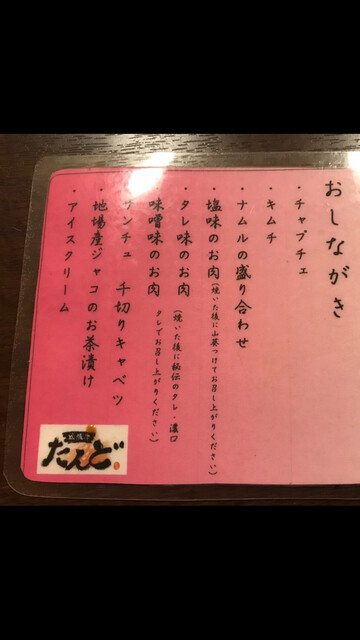 おしながき
・チャプチェ
・キムチ
・ナムルの盛り合わせ
・塩味のお肉(焼いた後に山葵つけてお召し上がりください)
・タレ味のお肉(焼いた後に秘伝のタレ・濃口
タレでお召し上がりください)
味噌味のお肉
サンチュ 千切りキャベツ
・地場産ジャコのお茶漬け
・アイスクリーム
たんど